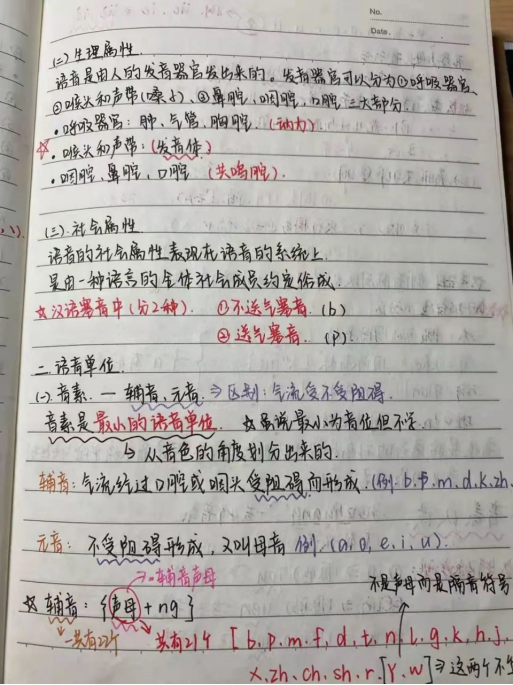 No.
Date.
(二)生理属性.
语音是由人的发音器官发出来的。发音器官可以分为①呼吸器官、
②喉头和声带(嗓子)、③鼻腔、咽腔、口腔 三大部分
·呼吸器官:肺、气管、胸腔 (动力)
☆·喉头和声带:(发音体)
·咽腔、鼻腔、口腔 (共鸣腔).
(三).社会属性
语音的社会属性表现在语音的系统上.
是由一种语言的全体社会成员约定俗成.
☆汉语塞音中(分2种). ①不送气塞音.(b)
②送气塞音. (p)
二.语音单位.
(一).音素. — 辅音、元音 ⇒区别:气流受不受阻碍.
音素是最小的语音单位. ☆虽说最小为音位但不学
↳ 从音色的角度划分出来的.
辅音:气流经过口腔或咽头受阻碍而形成.(例:b.p.m.d.k.zh.
元音: 不受阻碍形成,又叫母音 例.(a,o,e,i,u).
⇒辅音声母
不是声母而是隔音符号
☆ 辅音:{声母+ng}
一共有22个
共有21个 [b.p.m.f.d.t.n.l.g.k.h.j.
x.zh.ch.sh.r.[Y.w]⇒这两个不